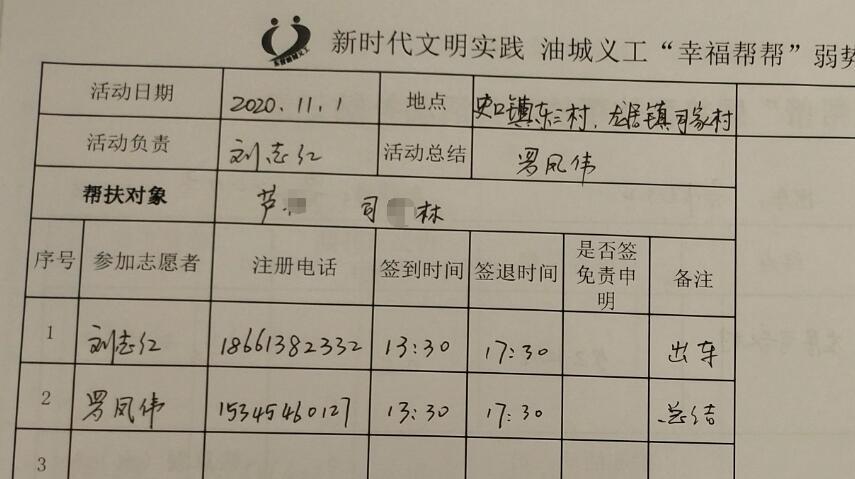 新时代文明实践 油城义工“幸福帮帮”弱势
活动日期 2020.11.1 地点 史口镇东三村，龙居镇司家村
活动负责 刘志红 活动总结 罗凤伟
帮扶对象 芦 司 林
序号 参加志愿者 注册电话 签到时间 签退时间 是否签免责申明 备注
1 刘志红 18661382332 13:30 17:30 出车
2 罗凤伟 15345460127 13:30 17:30 总结
3